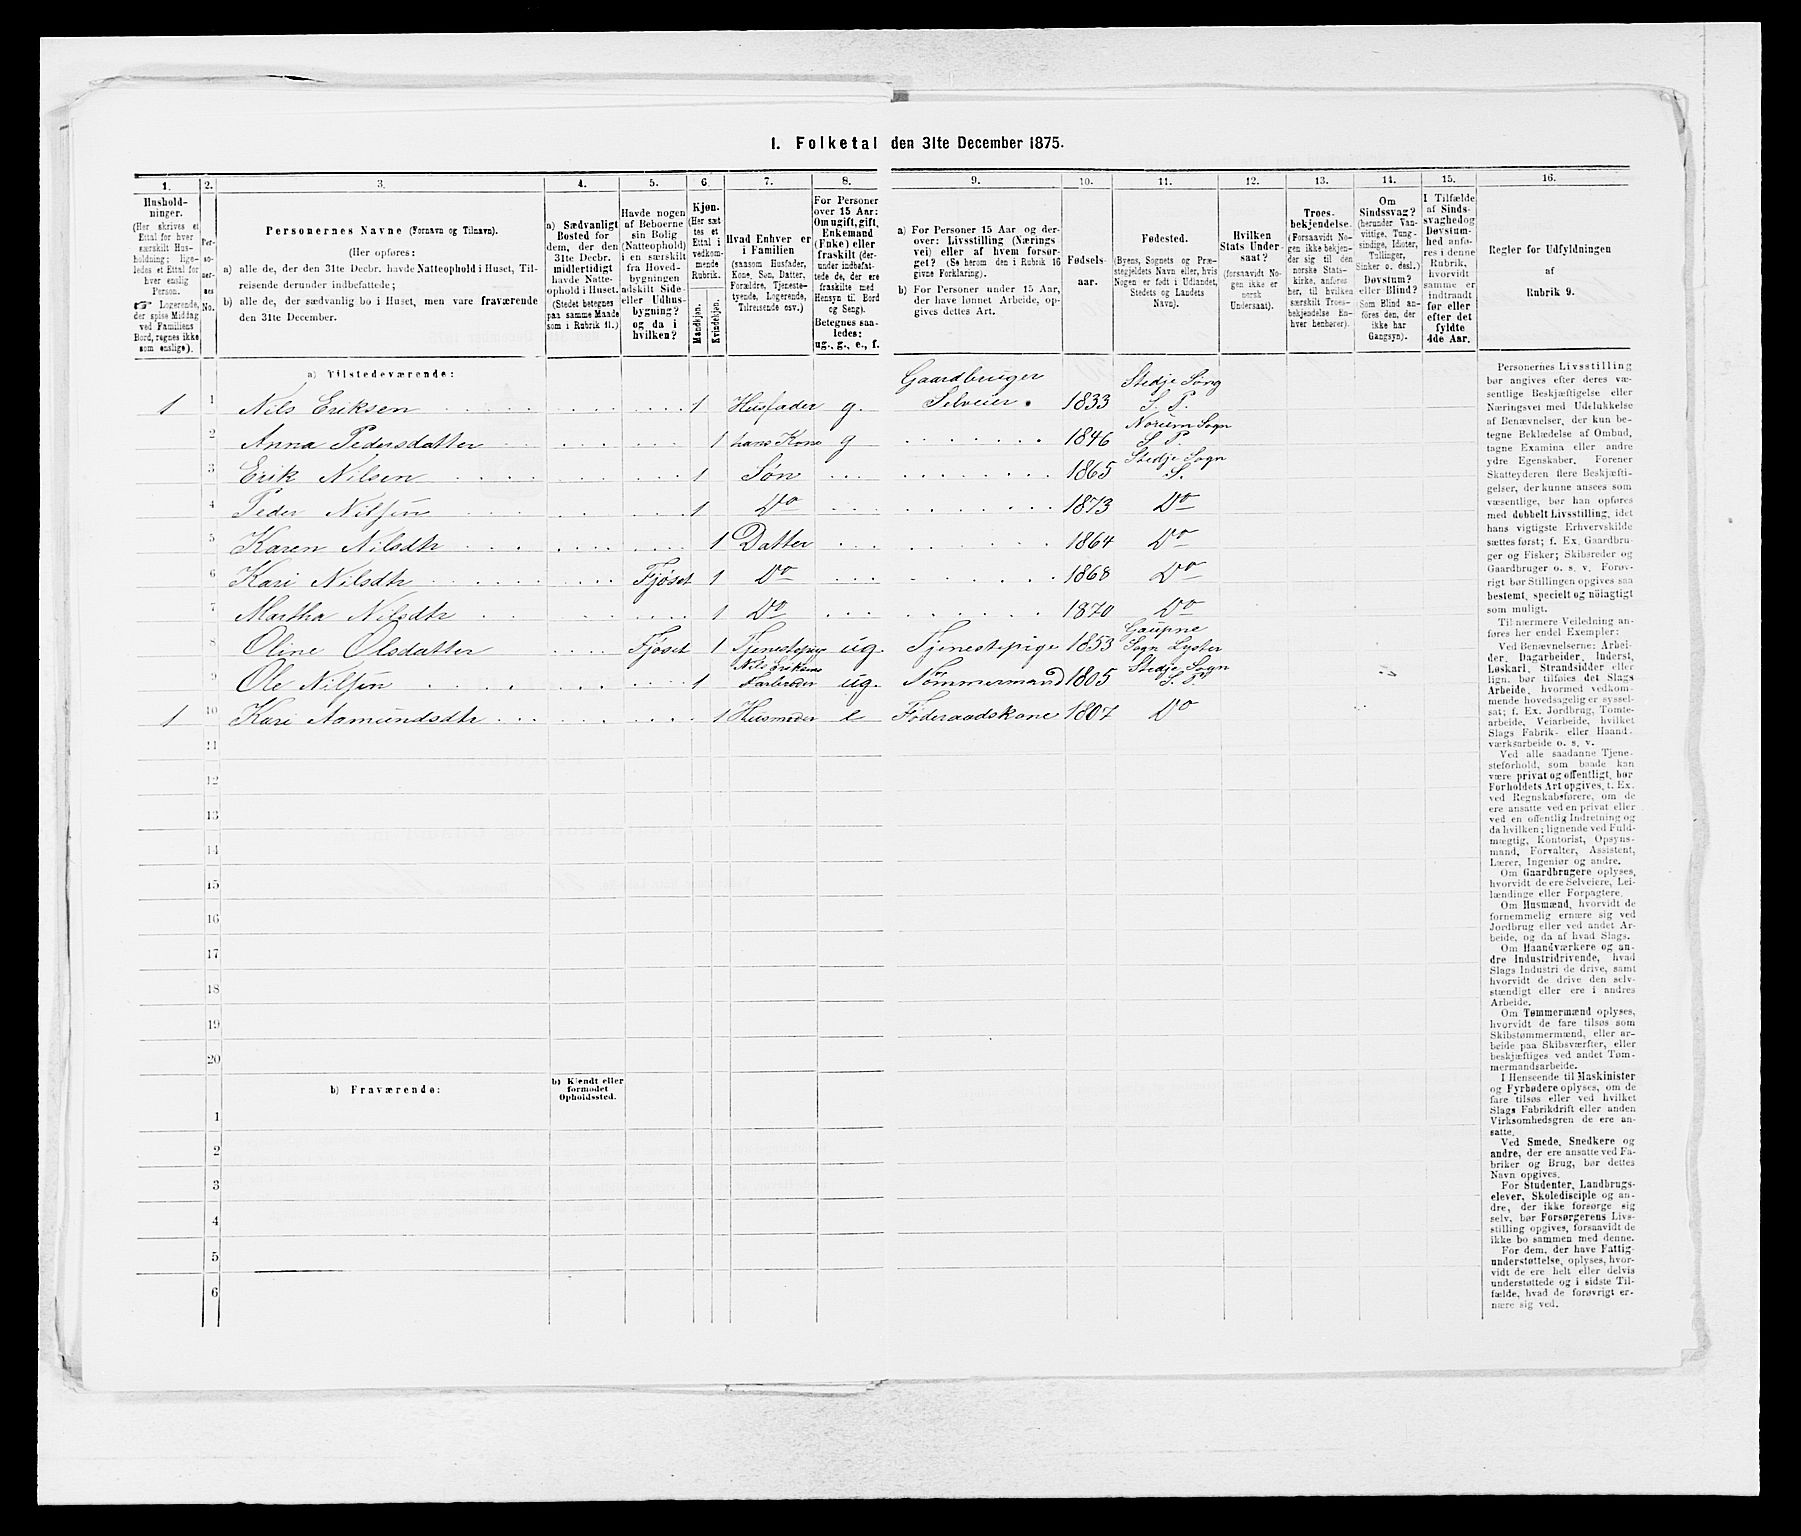 I. Folketal den 31te December 1875.
1. 2. 3. 4. 5. 6. 7. 8. 9. 10. 11. 12. 13. 14. 15. 16.
Hushold-
ninger.
(Her skrives et
Ettal for hver
særskilt Hus-
holdning; lige-
ledes et Ettal for
hver enslig
Person.
☞ Logerende,
der spise Middag
ved Familiens
Bord, regnes ikke
som enslige).
Per-
so-
ner-
nes
No.
Personernes Navne (Fornavn og Tilnavn).
(Her opføres:
a) alle de, der den 31te Decbr. havde Natteophold i Huset, Til-
reisende derunder indbefattede;
b) alle de, der sædvanlig bo i Huset, men vare fraværende
den 31te December.
a) Sædvanligt
Bosted for
dem, der den
31te Decbr.
midlertidigt
havde Natte-
ophold i Huset.
(Stedet betegnes
paa samme Maade
som i Rubrik 11.)
Havde nogen
af Beboerne
sin Bolig
(Natteophold)
i en særskilt
fra Hoved-
bygningen
adskilt Side-
eller Udhus-
bygning?
og da i
hvilken?
Kjøn.
(Her sæt-
tes et
Ettal i
vedkom-
mende
Rubrik.
Mandkjøn.
Kvindekjøn.
Hvad Enhver er
i Familien
(saasom Husfader,
Kone, Søn, Datter,
Forældre, Tjeneste-
tyende, Logerende,
Tilreisende osv.)
For Personer
over 15 Aar:
Om ugift, gift,
Enkemand
(Enke) eller
fraskilt (der-
under indbefat-
tede de, der ere
fraskilte med
Hensyn til Bord
og Seng).
Betegnes saa-
ledes:
ug., g., e., f.
a) For Personer 15 Aar og der-
over: Livsstilling (Nærings-
vei) eller af hvem forsør-
get? (Se herom den i Rubrik 16
givne Forklaring).
b) For Personer under 15 Aar,
der have lønnet Arbeide, op-
gives dettes Art.
Fødsels-
aar.
Fødested.
(Byens, Sognets og Præ-
stegjeldets Navn eller, hvis
Nogen er født i Udlandet,
Stedets og Landets
Navn).
Hvilken
Stats Under-
saat?
(forsaavidt No-
gen ikke er
norsk
Undersaat).
Troes-
bekjendelse.
(Forsaavidt No-
gen ikke bekjen-
der sig til den
norske Stats-
kirke, anføres
her, til hvilken
særskilt Troes-
bekjendelse En-
hver henhører).
Om
Sindssvag?
(herunder Van-
vittige, Tung-
sindige, Idioter,
Tullinger,
Sinker o. desl.)
Døvstum?
eller Blind?
(Som Blind an-
føres den, der
ikke har
Gangsyn).
I Tilfælde
af Sinds-
svaghed og
Døvstum-
hed anfø-
res i denne
Rubrik,
hvorvidt
samme er
indtraadt
før eller
efter det
fyldte
4de Aar.
Regler for Udfyldningen
af
Rubrik 9.
a) Tilstedeværende:
1 1 Nils Eriksen 1 Husfader g. Gaardbruger Selveier. 1833 Stedje Sogn S. P.
2 Anna Pedersdatter 1 hans Kone g 1846 Noreim Sogn S P
3 Erik Nilsen 1 Søn 1865 Stedje Sogn S.
4 Peder Nilsen 1 Do 1873 Do
5 Karen Nilsdtr 1 Datter 1864 Do
6 Kari Nilsdtr Fjøset 1 Do 1868 Do
7 Martha Nilsdtr 1 Do 1870 Do
8 Oline Olsdatter Fjøset 1 Tjenestepige ug. Tjenestepige 1853 Gaupne Sogn Lyster
9 Ole Nilsen 1 Nils Eriksens Farbroder ug. Tømmermand 1805 Stedje Sogn S. P.
1 10 Kari Aamundsdtr 1 Husmoder e Føderaadskone 1807 Do
11
12
13
14
15
16
17
18
19
20
b) Fraværende:
b) Kjendt eller
formodet
Opholdssted.
1
2
3
4
5
6
Personernes Livsstilling
bør angives efter deres væ-
sentlige Beskjæftigelse eller
Næringsvei med Udelukkelse
af Benævnelser, der kun be-
tegne Beklædelse af Ombud,
tagne Examina eller andre
ydre Egenskaber. Forener
Skatteyderen flere Beskjæfti-
gelser, der kunne ansees som
væsentlige, bør han opføres
med dobbelt Livsstilling, idet
hans vigtigste Erhvervskilde
sættes først; f. Ex. Gaardbru-
ger og Fisker; Skibsreder og
Gaardbruger o. s. v. Forøv-
rigt bør Stillingen opgives saa
bestemt, specielt og nöiagtigt
som muligt.
Til nærmere Veiledning an-
føres her endel Exempler:
Ved Benævnelserne: Arbei-
der, Dagarbeider, Inderst,
Løskarl, Strandsidder eller
lign. bør tilføies det Slags
Arbeide, hvormed vedkom-
mende hovedsagelig er syssel-
sat; f. Ex. Jordbrug, Tomte-
arbeide, Veiarbeide, hvilket
Slags Fabrik- eller Haand-
værksarbeide o. s. v.
Ved alle saadanne Tjene-
steforhold, som baade kan
være privat og offentligt, bør
Forholdets Art opgives, f. Ex.
ved Regnskabsførere, om de
ere ansatte ved en privat eller
ved en offentlig Indretning og
da hvilken; lignende ved Fuld-
mægtig, Kontorist, Opsyns-
mand, Forvalter, Assistent,
Lærer, Ingeniør og andre.
Om Gaardbrugere oplyses,
hvorvidt de ere Selveiere, Lei-
lændinge eller Forpagtere.
Om Husmænd, hvorvidt de
fornemmelig ernære sig ved
Jordbrug eller ved andet Ar-
beide, og da af hvad Slags.
Om Haandværkere og an-
dre Industridrivende, hvad
Slags Industri de drive, samt
hvorvidt de drive den selv-
stændigt eller ere i andres
Arbeide.
Om Tømmermænd oplyses,
hvorvidt de fare tilsøs som
Skibstømmermænd, eller ar-
beide paa Skibsværfter, eller
beskjæftiges ved andet Tøm-
mermandsarbeide.
I Henseende til Maskinister
og Fyrbødere oplyses, om de
fare tilsøs eller ved hvilket
Slags Fabrikdrift eller anden
Virksomhedsgren de ere an-
satte.
Ved Smede, Snedkere og
andre, der ere ansatte ved Fa-
briker og Brug, bør dettes
Navn opgives.
For Studenter, Landbrugs-
elever, Skoledisciple og an-
dre, der ikke forsørge sig
selv, bør Forsørgerens Livs-
stilling opgives, forsaavidt de
ikke bo sammen med denne.
For dem, der have Fattig-
understøttelse, oplyses, hvor-
vidt de ere helt eller delvis
understøttede og i sidste Til-
fælde, hvad de forøvrigt er-
nære sig ved.